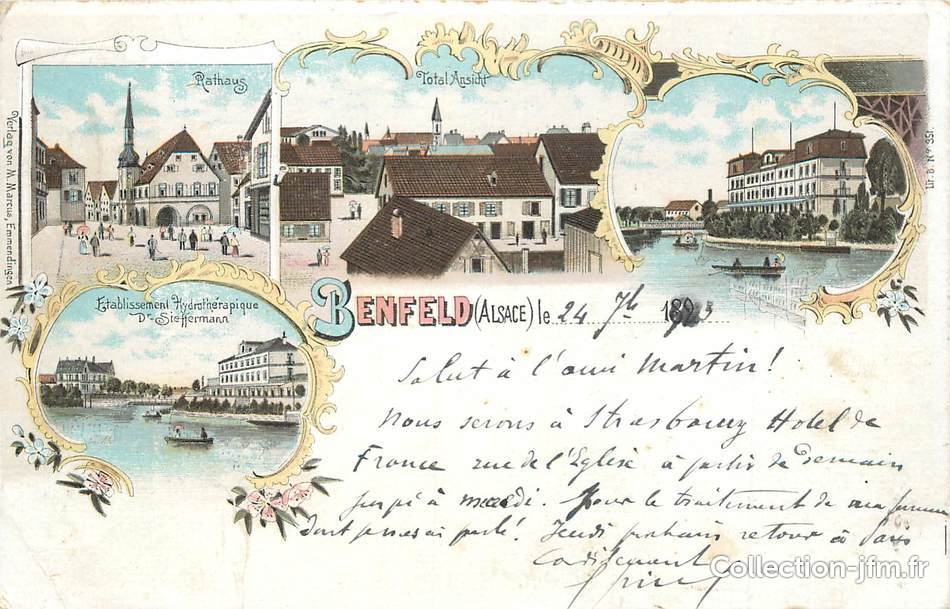 Rathaus
Total Ansicht
Etablissement Hydrothérapique
Dr. Sieffermann
Verlag von M. Marcus, Emmendingen
Lit. B. No 351.
BENFELD (ALSACE) le 24 7b 189
Salut à l'ami Martin!
Nous serons à Strasbourg Hotel de
France rue de l'Eglise à partir de demain
jusqu'à mardi. Pour le traitement de ma femme
dont je vous ai parlé! Jeudi prochain retour à Paris
Cordialement
Collection-jfm.fr